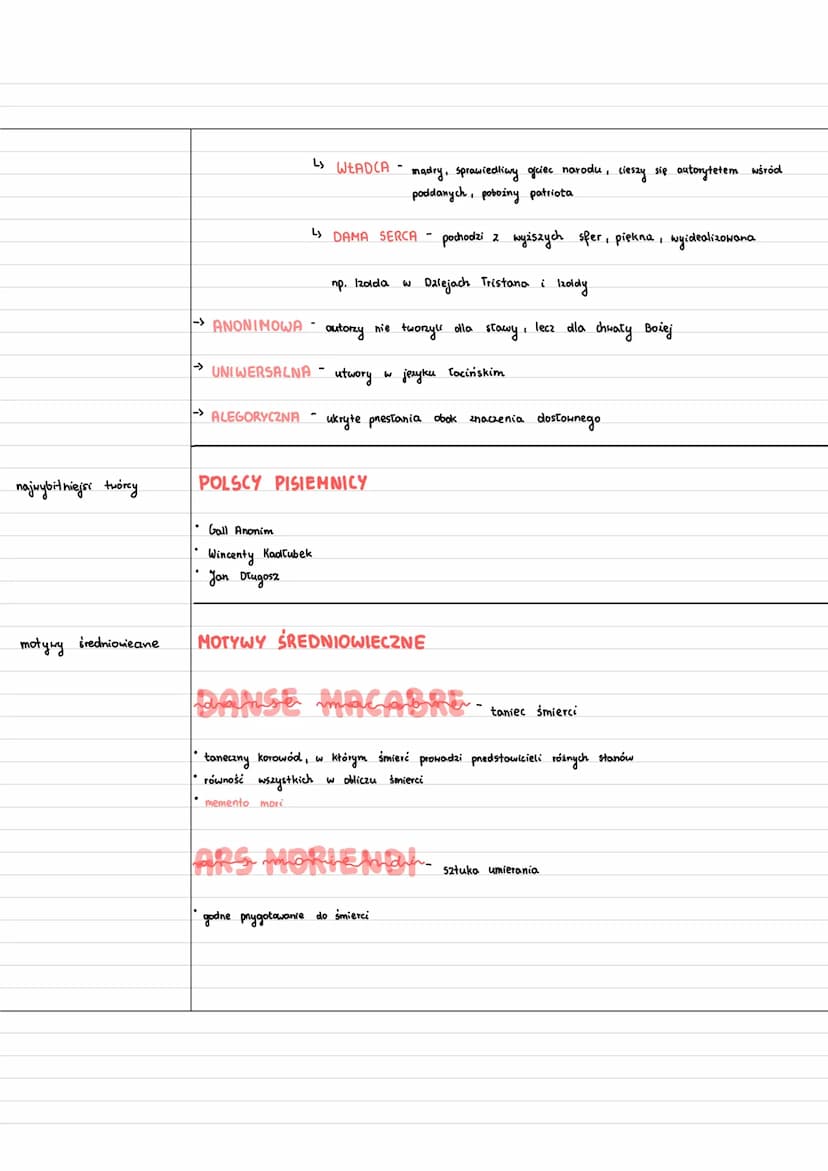 ↳ WŁADCA - mądry, sprawiedliwy ojciec narodu, cieszy się autorytetem wśród
poddanych, pobożny patriota
↳ DAMA SERCA - pochodzi z wyższych sfer, piękna, wyidealizowana
np. Izolda w Dziejach Tristana i Izoldy
→ ANONIMOWA - autorzy nie tworzyli dla sławy, lecz dla chwały Bożej
→ UNIWERSALNA - utwory w języku łacińskim
→ ALEGORYCZNA - ukryte przesłania obok znaczenia dosłownego
najwybitniejsi twórcy
POLSCY PISIEMNICY
• Gall Anonim
• Wincenty Kadłubek
• Jan Długosz
motywy średniowieczne
MOTYWY ŚREDNIOWIECZNE
DANSE MACABRE - taniec śmierci
danse macabre
• taneczny korowód, w którym śmierć prowadzi przedstawicieli różnych stanów
• równość wszystkich w obliczu śmierci
• memento mori
ARS MORIENDI - sztuka umierania
ars moriendi
• godne przygotowanie do śmierci